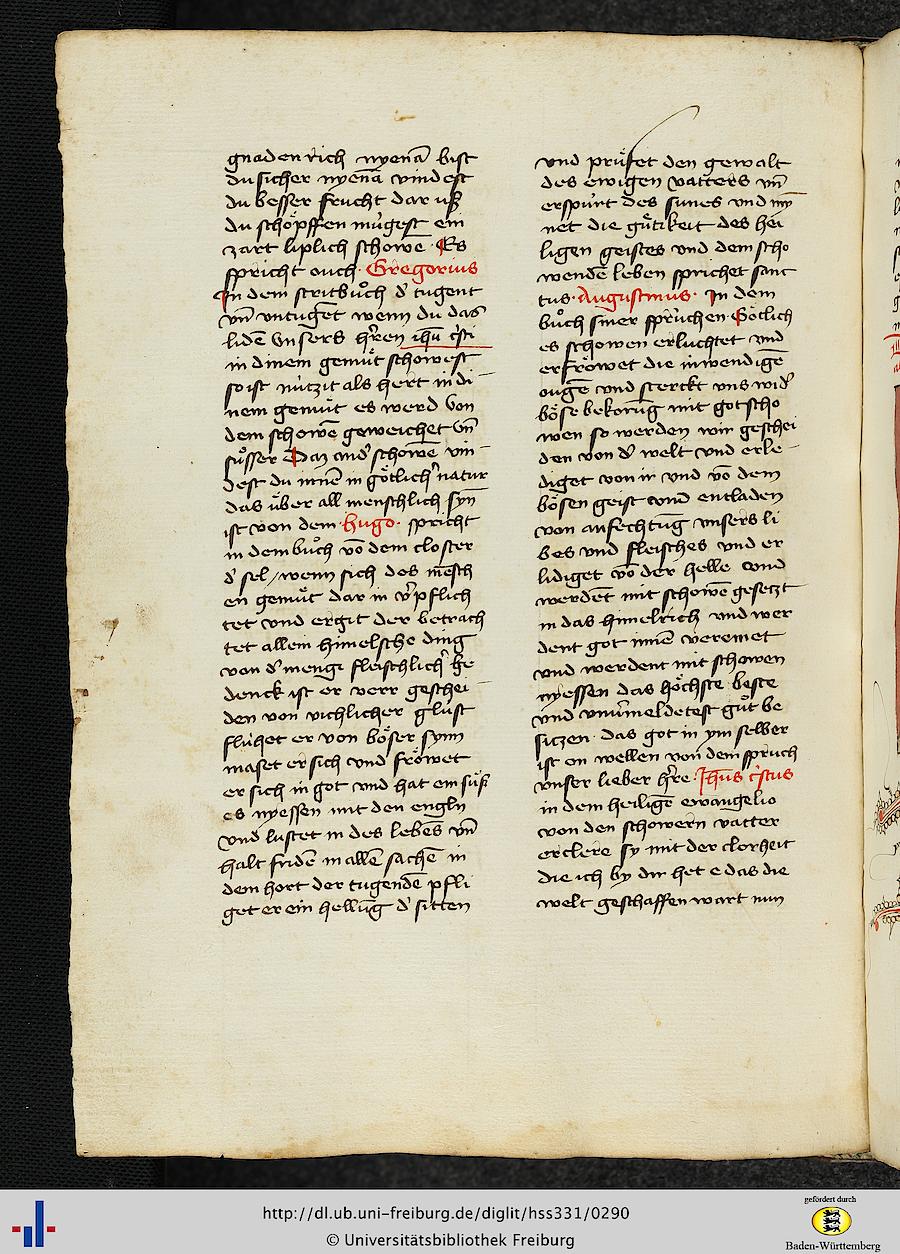 gnaden rich nyena̅ bist
du sicher nyena̅ vindest
du besser frucht dar uß
du schöpffen mugest ein
zart liplich schowe̅ · Es
spricht ouch · Gregorius
In dem stritbuͦch d̕ tugent
vn̅ vntuge̅t wenn du das
lide̅ vnsers h̕ren ih̅u c̕sti
in dinem gemuͤt schowest
so ist nutzit als hert in di
nem gemuͤt es werd von
dem schowe̅ geweichet vn̅
suͤsser Daz and̕ schowe̅ vin
dest du inne̅ in götlich̕ natur
das über all menschlich syn̅
ist von dem · hugo · spricht
in dem buͦch vo̅ dem closter
d̕ sel / wenn sich des me̅sch
en gemuͤt dar in v̕pflich
tet vnd ergit der betrach
tet allein himelsche ding
von d̕ mengi fleischlich̕ ge
denck ist er verr geschei
den von vichlicher glust
fluhet er von böser synn
maset er sich vnd fröwet
er sich in got vnd hat ein süss
es nyessen mit den engln
vnd lustet in des lebe̅s vn̅
halt fride̅ in alle̅ sache̅ in
dem hort der tugende̅ pfli
get er ein hellu̅g d̕ sitten
vnd pruͤfet den gewalt
des ewigen vatters vn̅
erspurt des sunes vnd
net die guͤtikeit des hei
ligen geistes vnd dem scho
wende̅ leben sprichet sanc
tus · Augustinus · In dem
buͦch siner spruchen Götlich
es schowen erluchtet vnd
erfröwet die inwendige̅
ouge̅ vnd sterckt vns wid̕
böse bekoru̅g mit got scho
wen so werden wir geschei
den von d̕ welt vnd erle
diget von ir vnd vo̅ dem
bösen geist vnd entladen
von anfechtu̅g vnsers li
bes vnd fleisches vnd er
lidiget vo̅ der helle vnd
werdet mit schowe̅ gesetzt
in das himelrich vnd wer
dent got inne̅ vereinet
vnd werdent mit schowen
nyessen das höchste beste
vnd vnu̕meldetest guͦt be
sitzen · das got in ym selber
ist on wellen von dem spruch
vnser lieber h̕re · Jh̅us c̕stus
in dem heilige̅ ewangelio
von den schowern vatter
erclere sy mit der clorheit
die ich by dir het e das die
welt geschaffen wart nun
http://dl.ub.uni-freiburg.de/diglit/hss331/0290
© Universitätsbibliothek Freiburg
gefördert durch
Baden-Württemberg